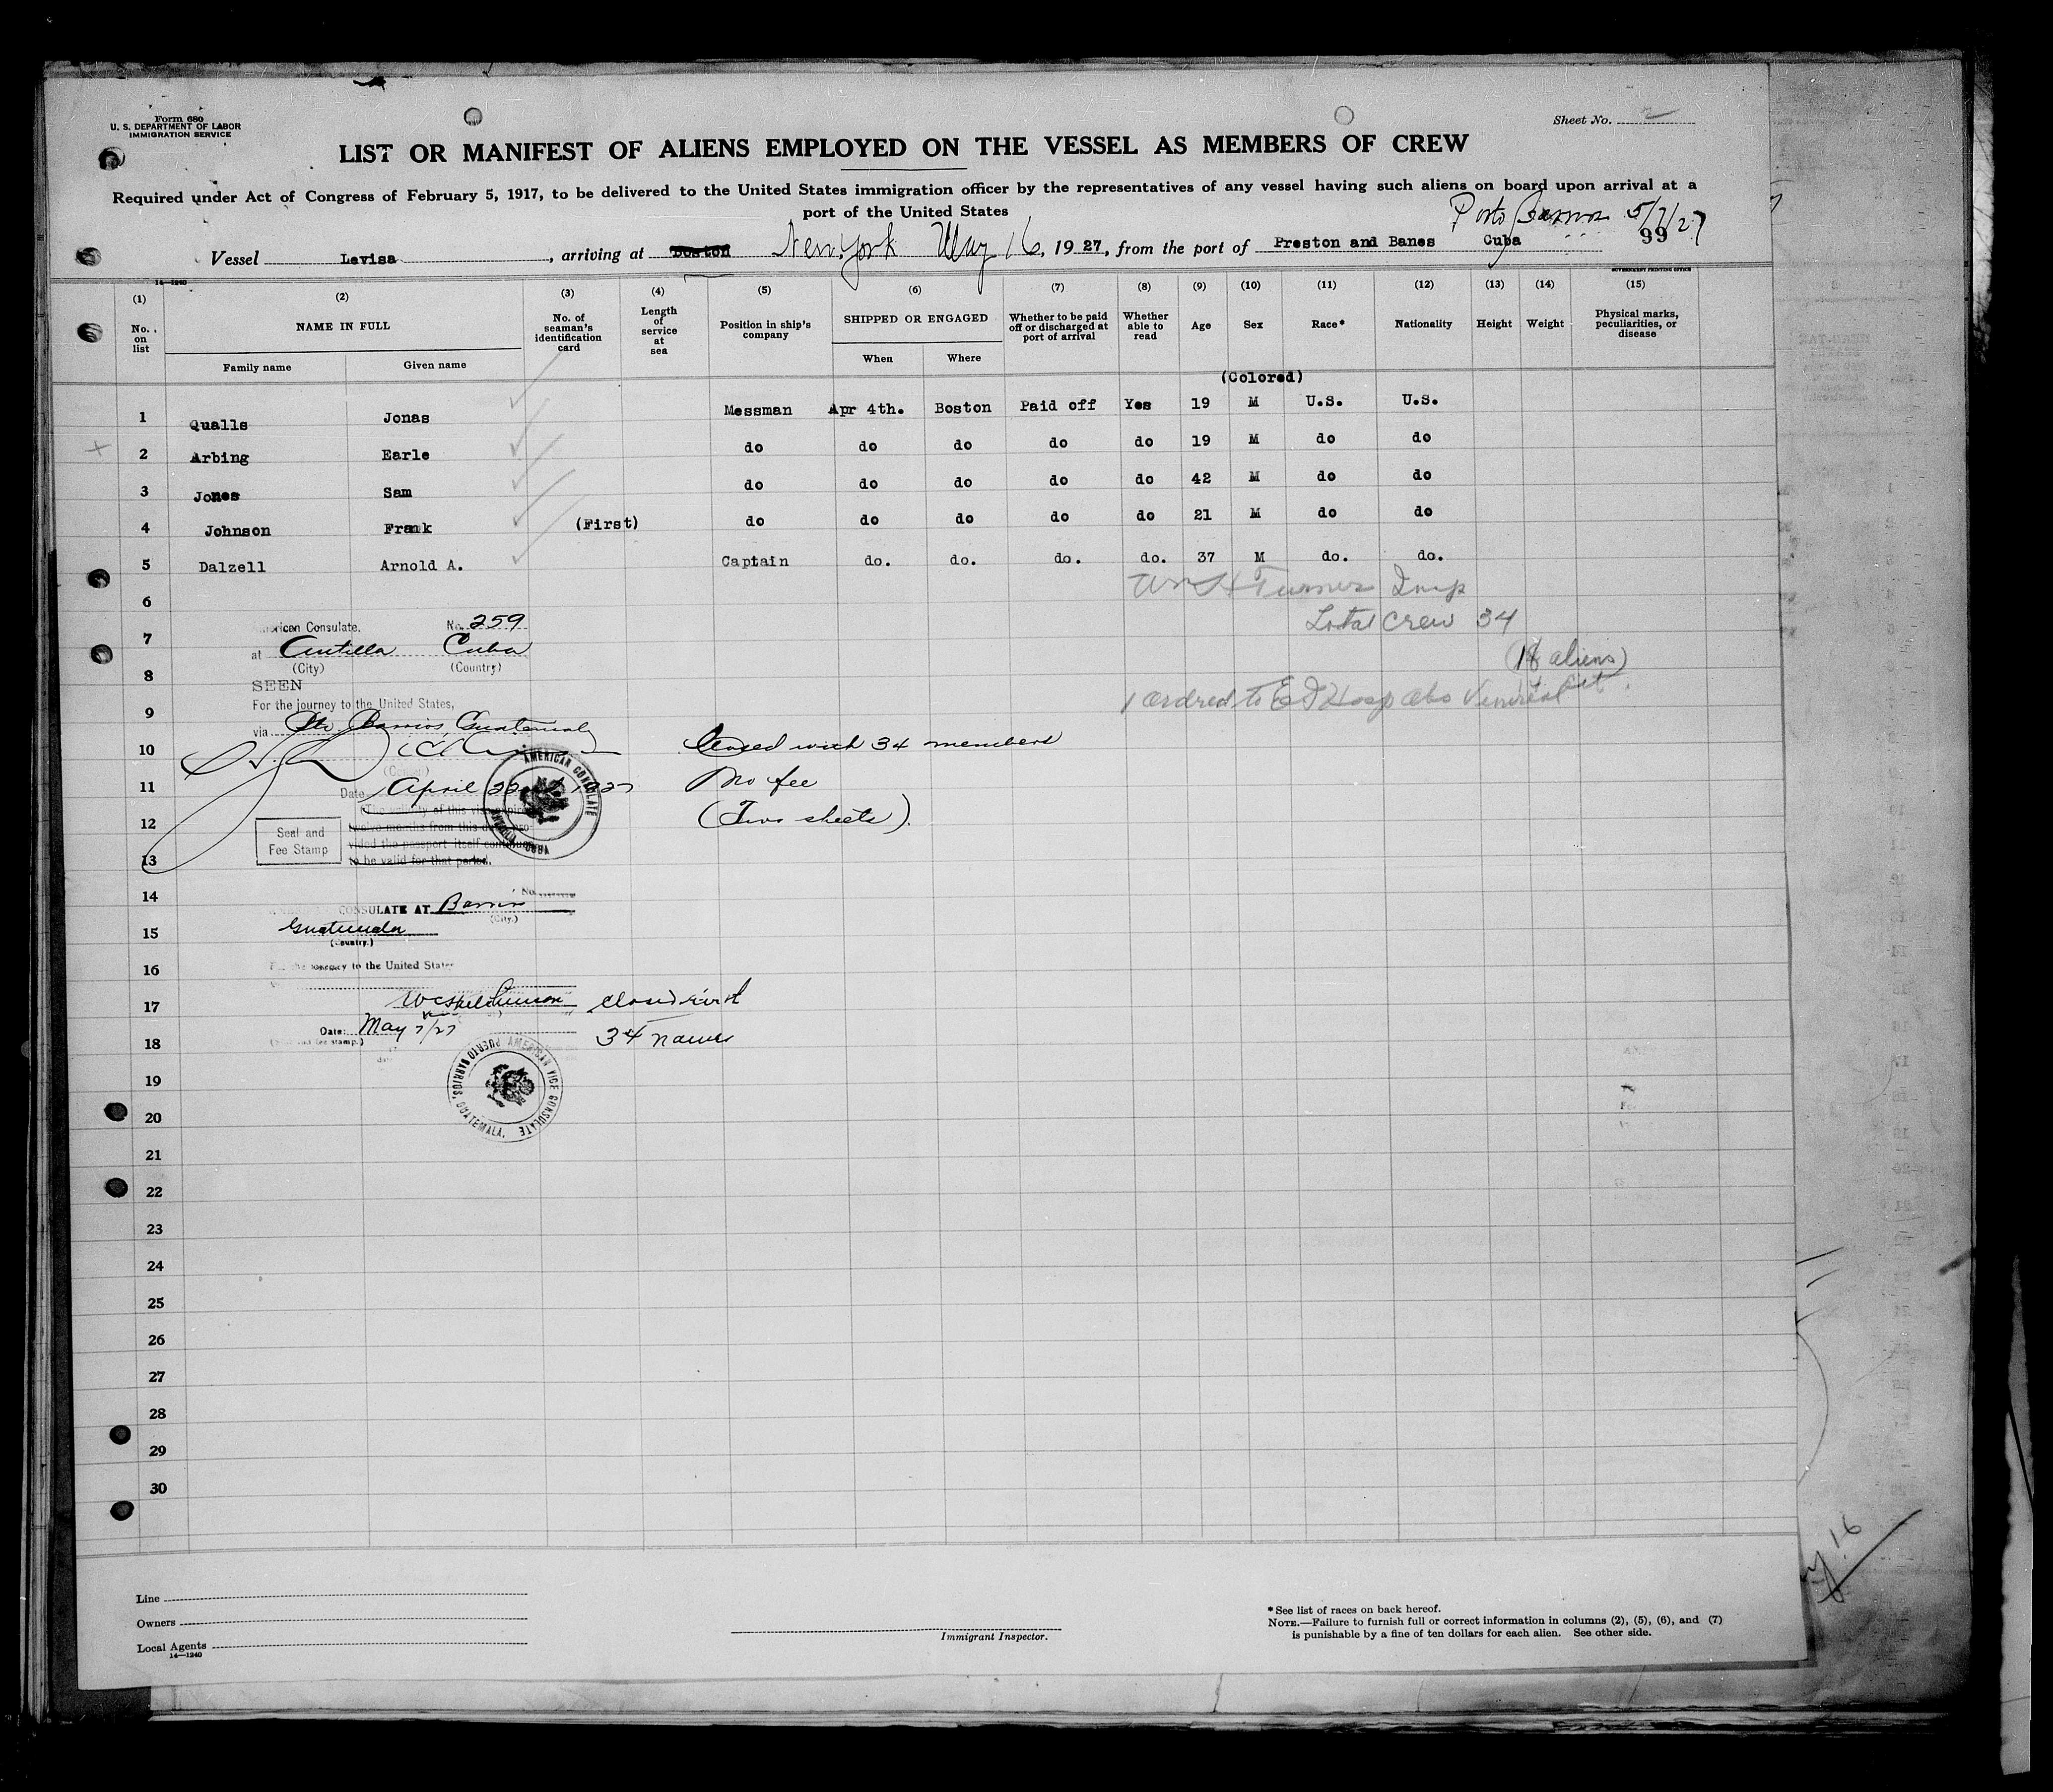 Form 680
U. S. DEPARTMENT OF LABOR
IMMIGRATION SERVICE
Sheet No. 2
LIST OR MANIFEST OF ALIENS EMPLOYED ON THE VESSEL AS MEMBERS OF CREW
Required under Act of Congress of February 5, 1917, to be delivered to the United States immigration officer by the representatives of any vessel having such aliens on board upon arrival at a
port of the United States
Porto Barrios 5/7/27
99
Vessel Levisa, arriving at Boston New York May 16, 1927, from the port of Preston and Banes Cuba
14—1240
GOVERNMENT PRINTING OFFICE
(1) (2) (3) (4) (5) (6) (7) (8) (9) (10) (11) (12) (13) (14) (15)
No. on list
NAME IN FULL
Family name
Given name
No. of seaman's identification card
Length of service at sea
Position in ship's company
SHIPPED OR ENGAGED
When
Where
Whether to be paid off or discharged at port of arrival
Whether able to read
Age
Sex
Race*
Nationality
Height
Weight
Physical marks, peculiarities, or disease
(Colored)
1 Qualls Jonas Messman Apr 4th. Boston Paid off Yes 19 M U.S. U.S.
2 Arbing Earle do do do do do 19 M do do
3 Jones Sam do do do do do 42 M do do
4 Johnson Frank (First) do do do do do 21 M do do
5 Dalzell Arnold A. Captain do. do. do. do. 37 M do. do.
6
Wm H Turner Insp
Total crew 34
(18 aliens)
1 ordred to E I Hosp obs Venereal
American Consulate. No. 259
7
at Antilla Cuba
(City) (Country)
8
SEEN
For the journey to the United States,
9
via Pto Barrios, Guatemala
10
Closed with 34 members
11
Date April 22 1927
No fee
The validity of this visa expires
12
(Two sheets).
twelve months from this date pro-
Seal and
Fee Stamp
vided the passport itself continues
to be valid for that period.
13
AMERICAN CONSULATE
CUBA
14
No.
CONSULATE AT Barrios
(City.)
15
Guatemala
(Country.)
16
For the journey to the United States
17
closed with
Date: May 7/27
18
34 names
19
AMERICAN VICE CONSULATE PUERTO BARRIOS, GUATEMALA.
20
21
22
23
24
25
26
27
28
29
30
y 16
Line
Owners
Local Agents
14—1240
Immigrant Inspector.
* See list of races on back hereof.
NOTE.—Failure to furnish full or correct information in columns (2), (5), (6), and (7)
is punishable by a fine of ten dollars for each alien. See other side.